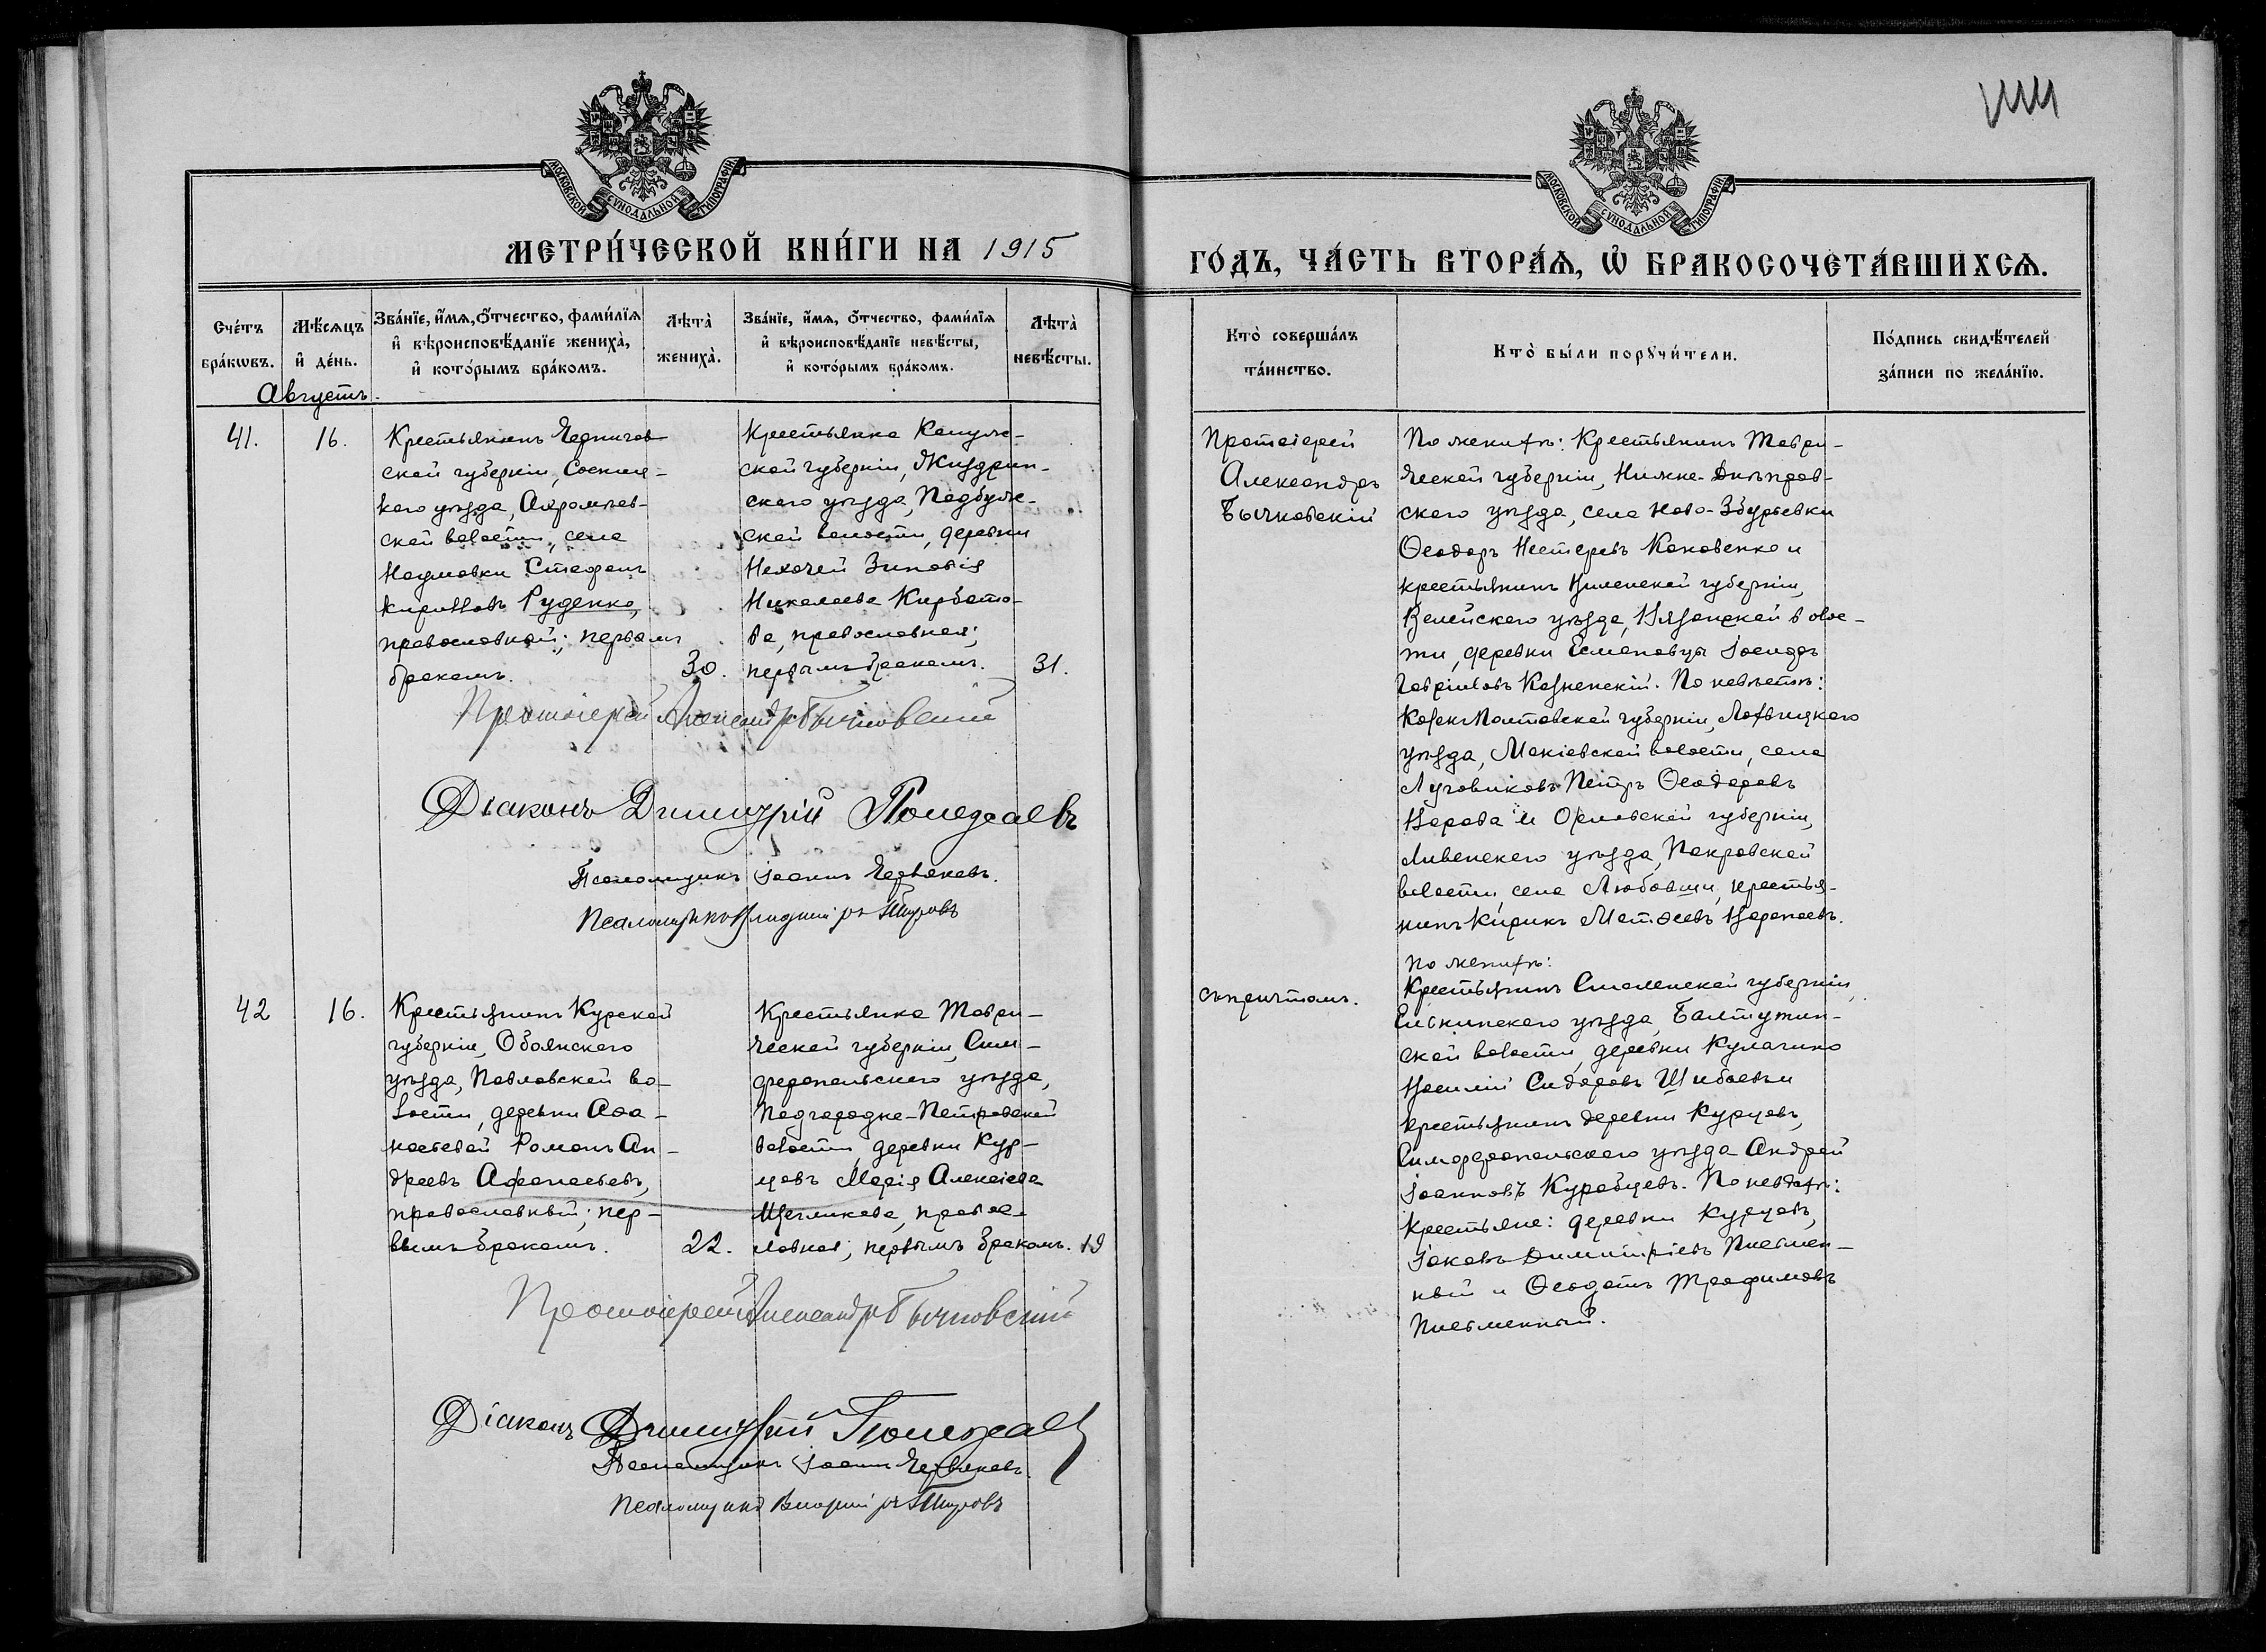 МОСКОВСКОЙ СѴНОДАЛЬНОЙ ТИПОГРАФІИ
МЕТРИ́ЧЕСКОЙ КНИ́ГИ НА 1915
Сче́тъ бра́кѡвъ.
Мѣ́сѧцъ и҆ де́нь.
Зва́нїе, и҆́мѧ, ѻ҆́тчество, фами́лїѧ
и҆ вѣроисповѣ́данїе жениха̀,
и҆ кото́рымъ бра́комъ.
Лѣта̀ жениха̀.
Зва́нїе, и҆́мѧ, ѻ҆́тчество, фами́лїѧ
и҆ вѣроисповѣ́данїе невѣ́сты,
и҆ кото́рымъ бра́комъ.
Лѣта̀ невѣ́сты.
Августъ.
41.
16.
Крестьянинъ Чернигов-
ской губерніи, Сосниц-
каго уѣзда, Ахромѣев-
ской волости, села
Наумовки Стефанъ
Кирилловъ Руденко,
православный; первымъ
бракомъ.
30.
Крестьянка Калуж-
ской губерніи, Жиздрин-
скаго уѣзда, Подбуж-
ской волости, деревни
Нехочей Зиновія
Николаева Курбато-
ва, православная;
первымъ бракомъ.
31.
Протоіерей Александръ Бычковскій
Діаконъ Димитрій Полеждаевъ
Псаломщикъ Іоаннъ Червяковъ.
Псаломщикъ
42
16.
Крестьянинъ Курской
губерніи, Обоянскаго
уѣзда, Павловской во-
лости, деревни Аѳа-
насьевой Романъ Ан-
дреевъ Афанасьевъ,
православный; пер-
вымъ бракомъ.
22.
Крестьянка Таври-
ческой губерніи, Сим-
феропольскаго уѣзда,
Подгородне-Петровской
волости, деревни Кур-
цовъ Марія Алексіева
Щегликова, правос-
лавная; первымъ бракомъ.
19
Протоіерей Александръ Бычковскій
Діаконъ Димитрій
Псаломщикъ Іоаннъ Червяковъ.
Псаломщикъ
МОСКОВСКОЙ СѴНОДАЛЬНОЙ ТИПОГРАФІИ
ГО́ДЪ, ЧА́СТЬ ВТОРА́Ѧ, Ѡ҆ БРАКОСОЧЕТА́ВШИХСѦ.
Кто̀ соверша́лъ
та́инство.
Кто̀ бы́ли порꙋчи́тели.
По́дпись свидѣ́телей
за́писи по жела́нїю.
Протоіерей
Александръ
Бычковскій
По женихѣ: Крестьянинъ Таври-
ческой губерніи, Нижне-Днѣпров-
скаго уѣзда, села Ново-Збурьевки
Ѳеодоръ Нестеровъ Коковенко и
крестьянинъ Виленской губерніи,
Велейскаго уѣзда, Вязанской волос-
ти, деревни Есмановцы Іосифъ
Гавріиловъ Козненскій. По невѣстѣ:
Козакъ Полтавской губерніи, Лохвицкаго
уѣзда, Макіевской волости, села
Луговиковъ Петръ Ѳеодоровъ
Ворова и Орловской губерніи,
Ливенскаго уѣзда, Покровской
волости, села Любовши, крестья-
нинъ Кирикъ Матѳеевъ
съ причтомъ.
По женихѣ:
Крестьянинъ Смоленской губерніи,
Ельнинскаго уѣзда, Балтутин-
ской волости, деревни Кулагино
Василій Сидоровъ Шибаевъ и
крестьянинъ деревни Курцовъ,
Симферопольскаго уѣзда Андрей
Іоанновъ Курабцевъ. По невѣстѣ:
Крестьяне: деревни Курцовъ,
Іаковъ Димитріевъ Письмен-
ный и Ѳеодотъ Трофимовъ
Письменный.